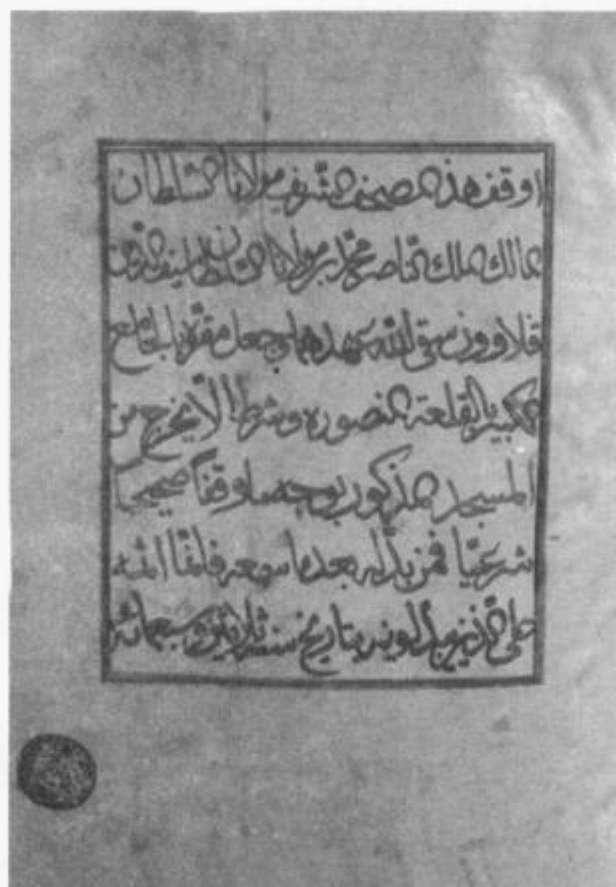 اوقف هذا المصحف الشريف مولانا السلطان
المالك الملك الناصر محمد ابن مولانا السلطان سيف الدين
قلاوون سقى الله عهدهما وجعل مقره بالجامع
الكبير بالقلعة المنصوره وشرط الّا يخرج من
المسجد المذكور بوجه ما وقفًا صحيحًا
شرعيًّا فمن بدّله بعد ما سمعه فانّما اثمه
على الّذين يبدّلونه بتاريخ سنة ثلاثين وسبعمائة